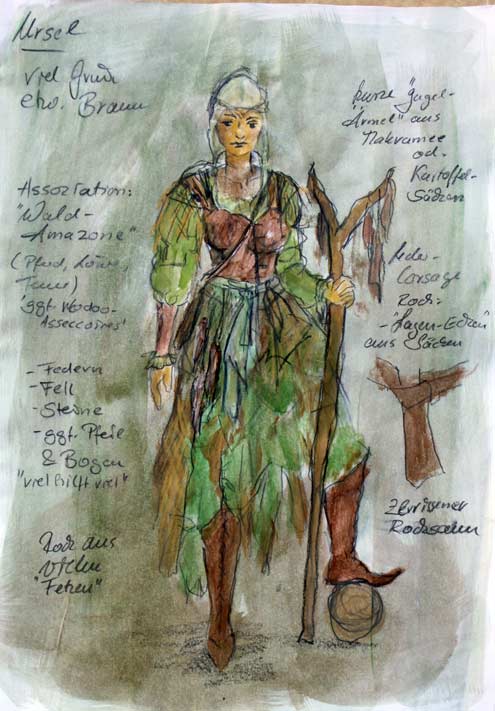 Ursel
viel Grün
etw. Braun
Assoziation:
"Wald-
Amazone"
(Pferd, Löwe,
'ggf. Voodoo-
Asseccoires'
- Federn
- Fell
- Steine
- ggf. Pfeile
& Bogen
"viel hilft viel"
Rock aus
vielen
"Fetzen"
kurze "Gugel-
Ärmel" aus
Makramee
od.
Kartoffel-
Säcken
Leder-
Corsage
Rock:
- "Lagen-Ecken"
aus Säcken
Zerrissener
Rocksaum